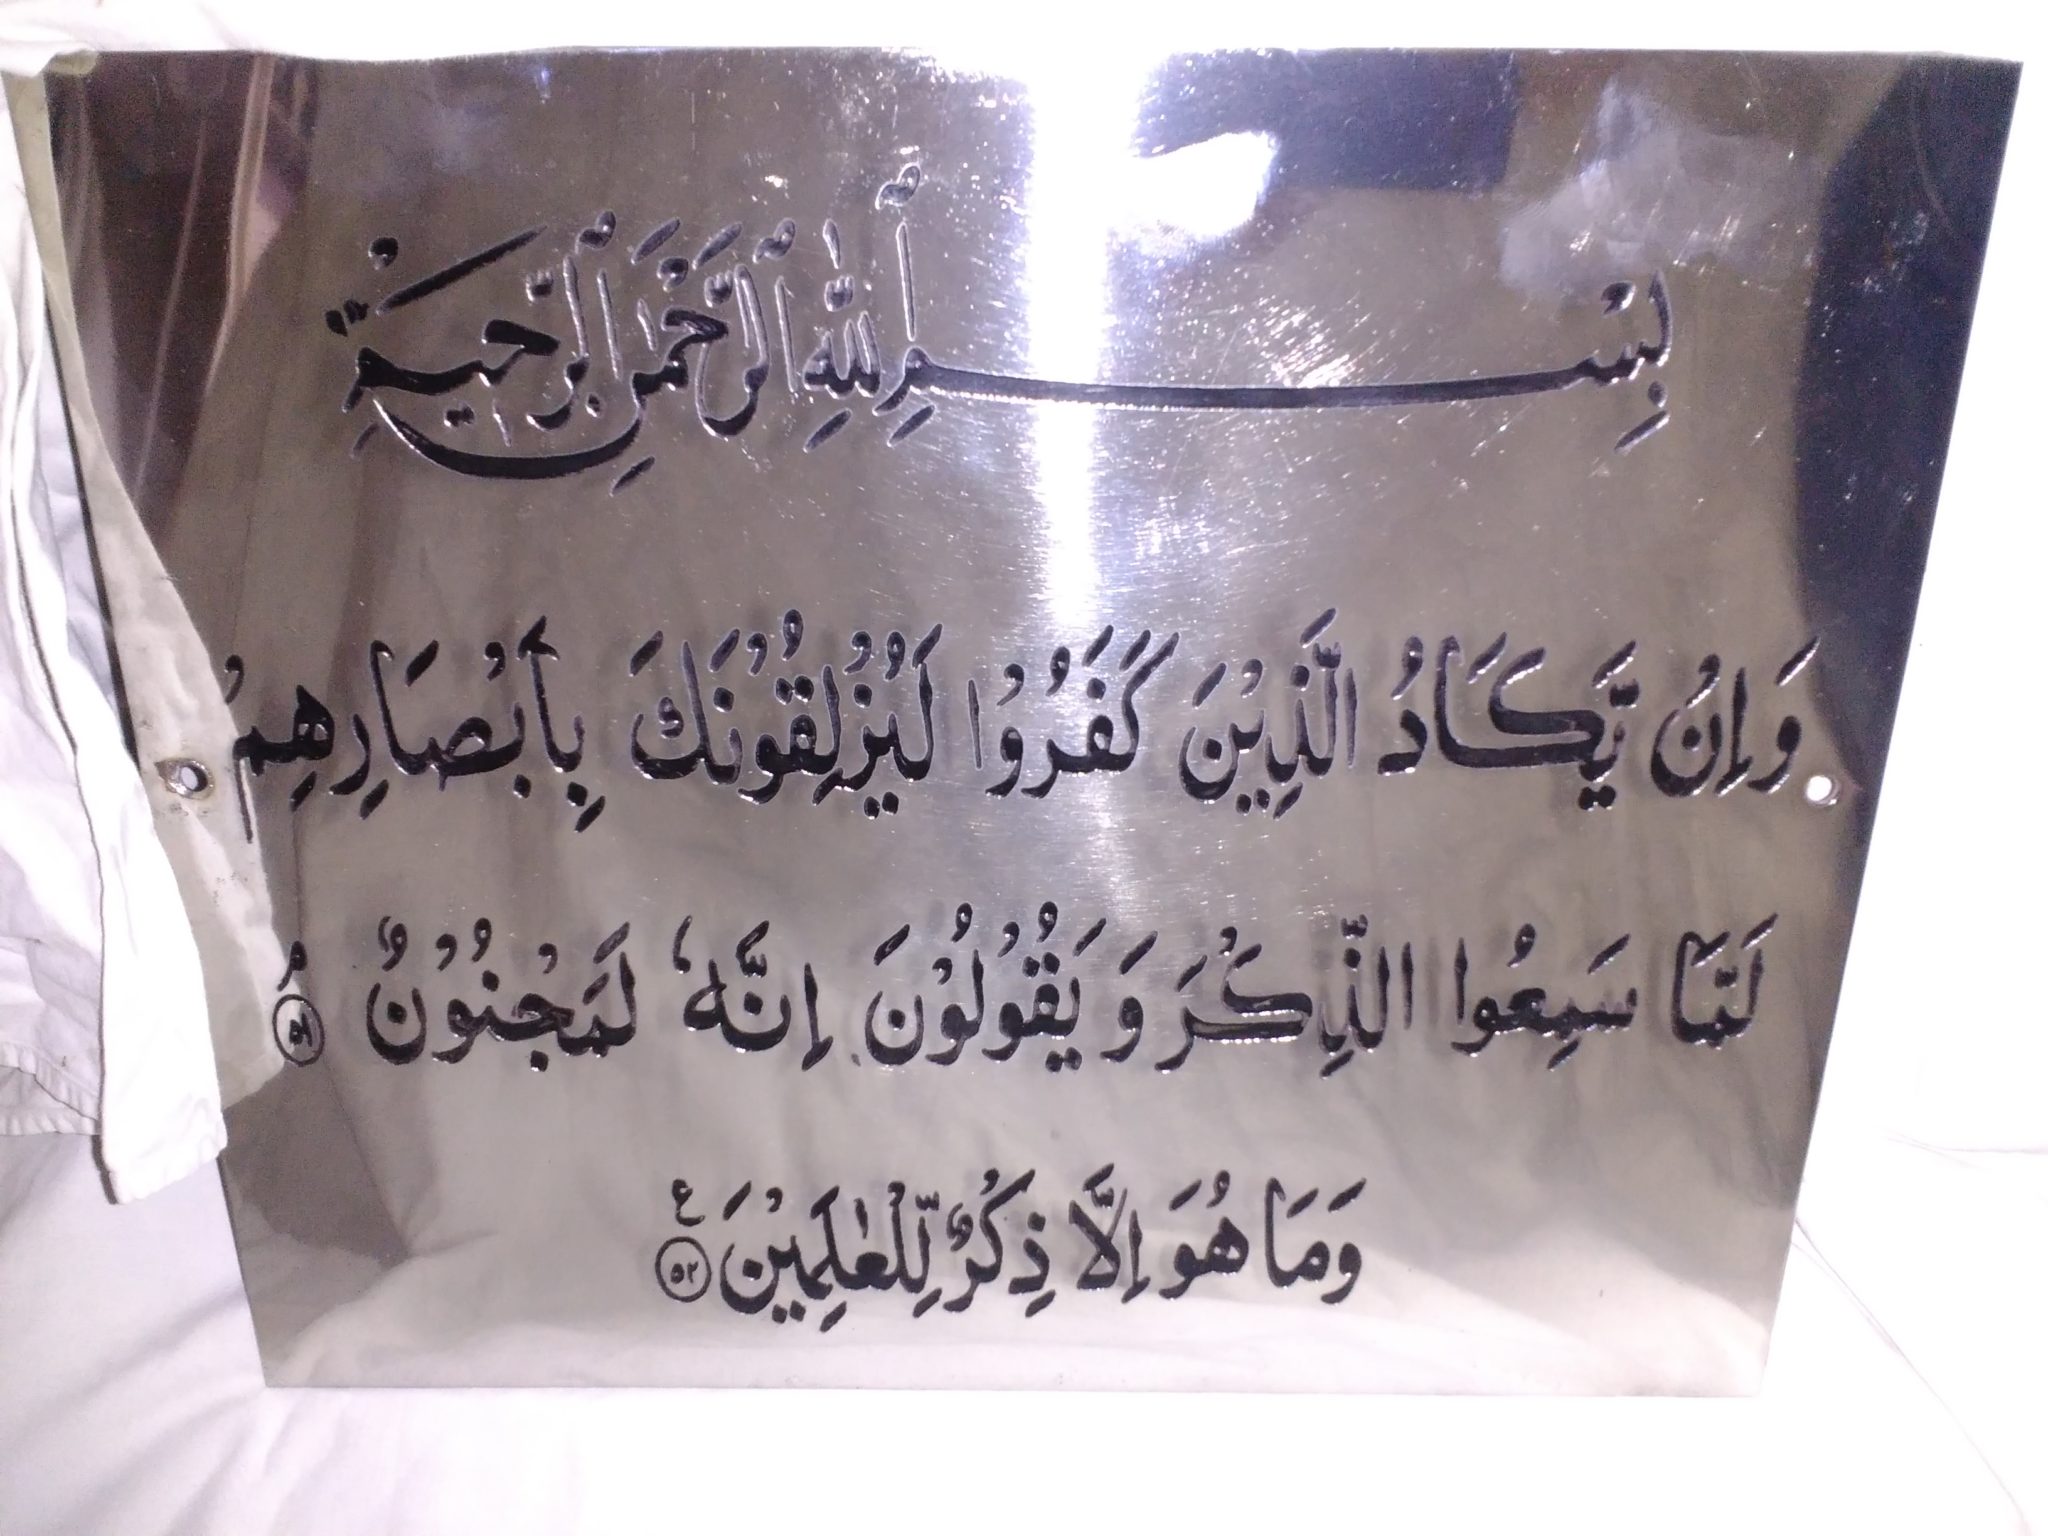 بِسْمِ ٱللّٰهِ ٱلرَّحْمٰنِ ٱلرَّحِيمِ
وَاِنْ يَّكَادُ الَّذِيْنَ كَفَرُوْا لَيُزْلِقُوْنَكَ بِاَبْصَارِهِمْ
لَمَّا سَمِعُوا الذِّكْرَ وَ يَقُوْلُوْنَ اِنَّهٗ لَمَجْنُوْنٌ ۘ ۵۱
وَمَا هُوَ اِلَّا ذِكْرٌ لِّلْعٰلَمِيْنَ ۵۲ ع